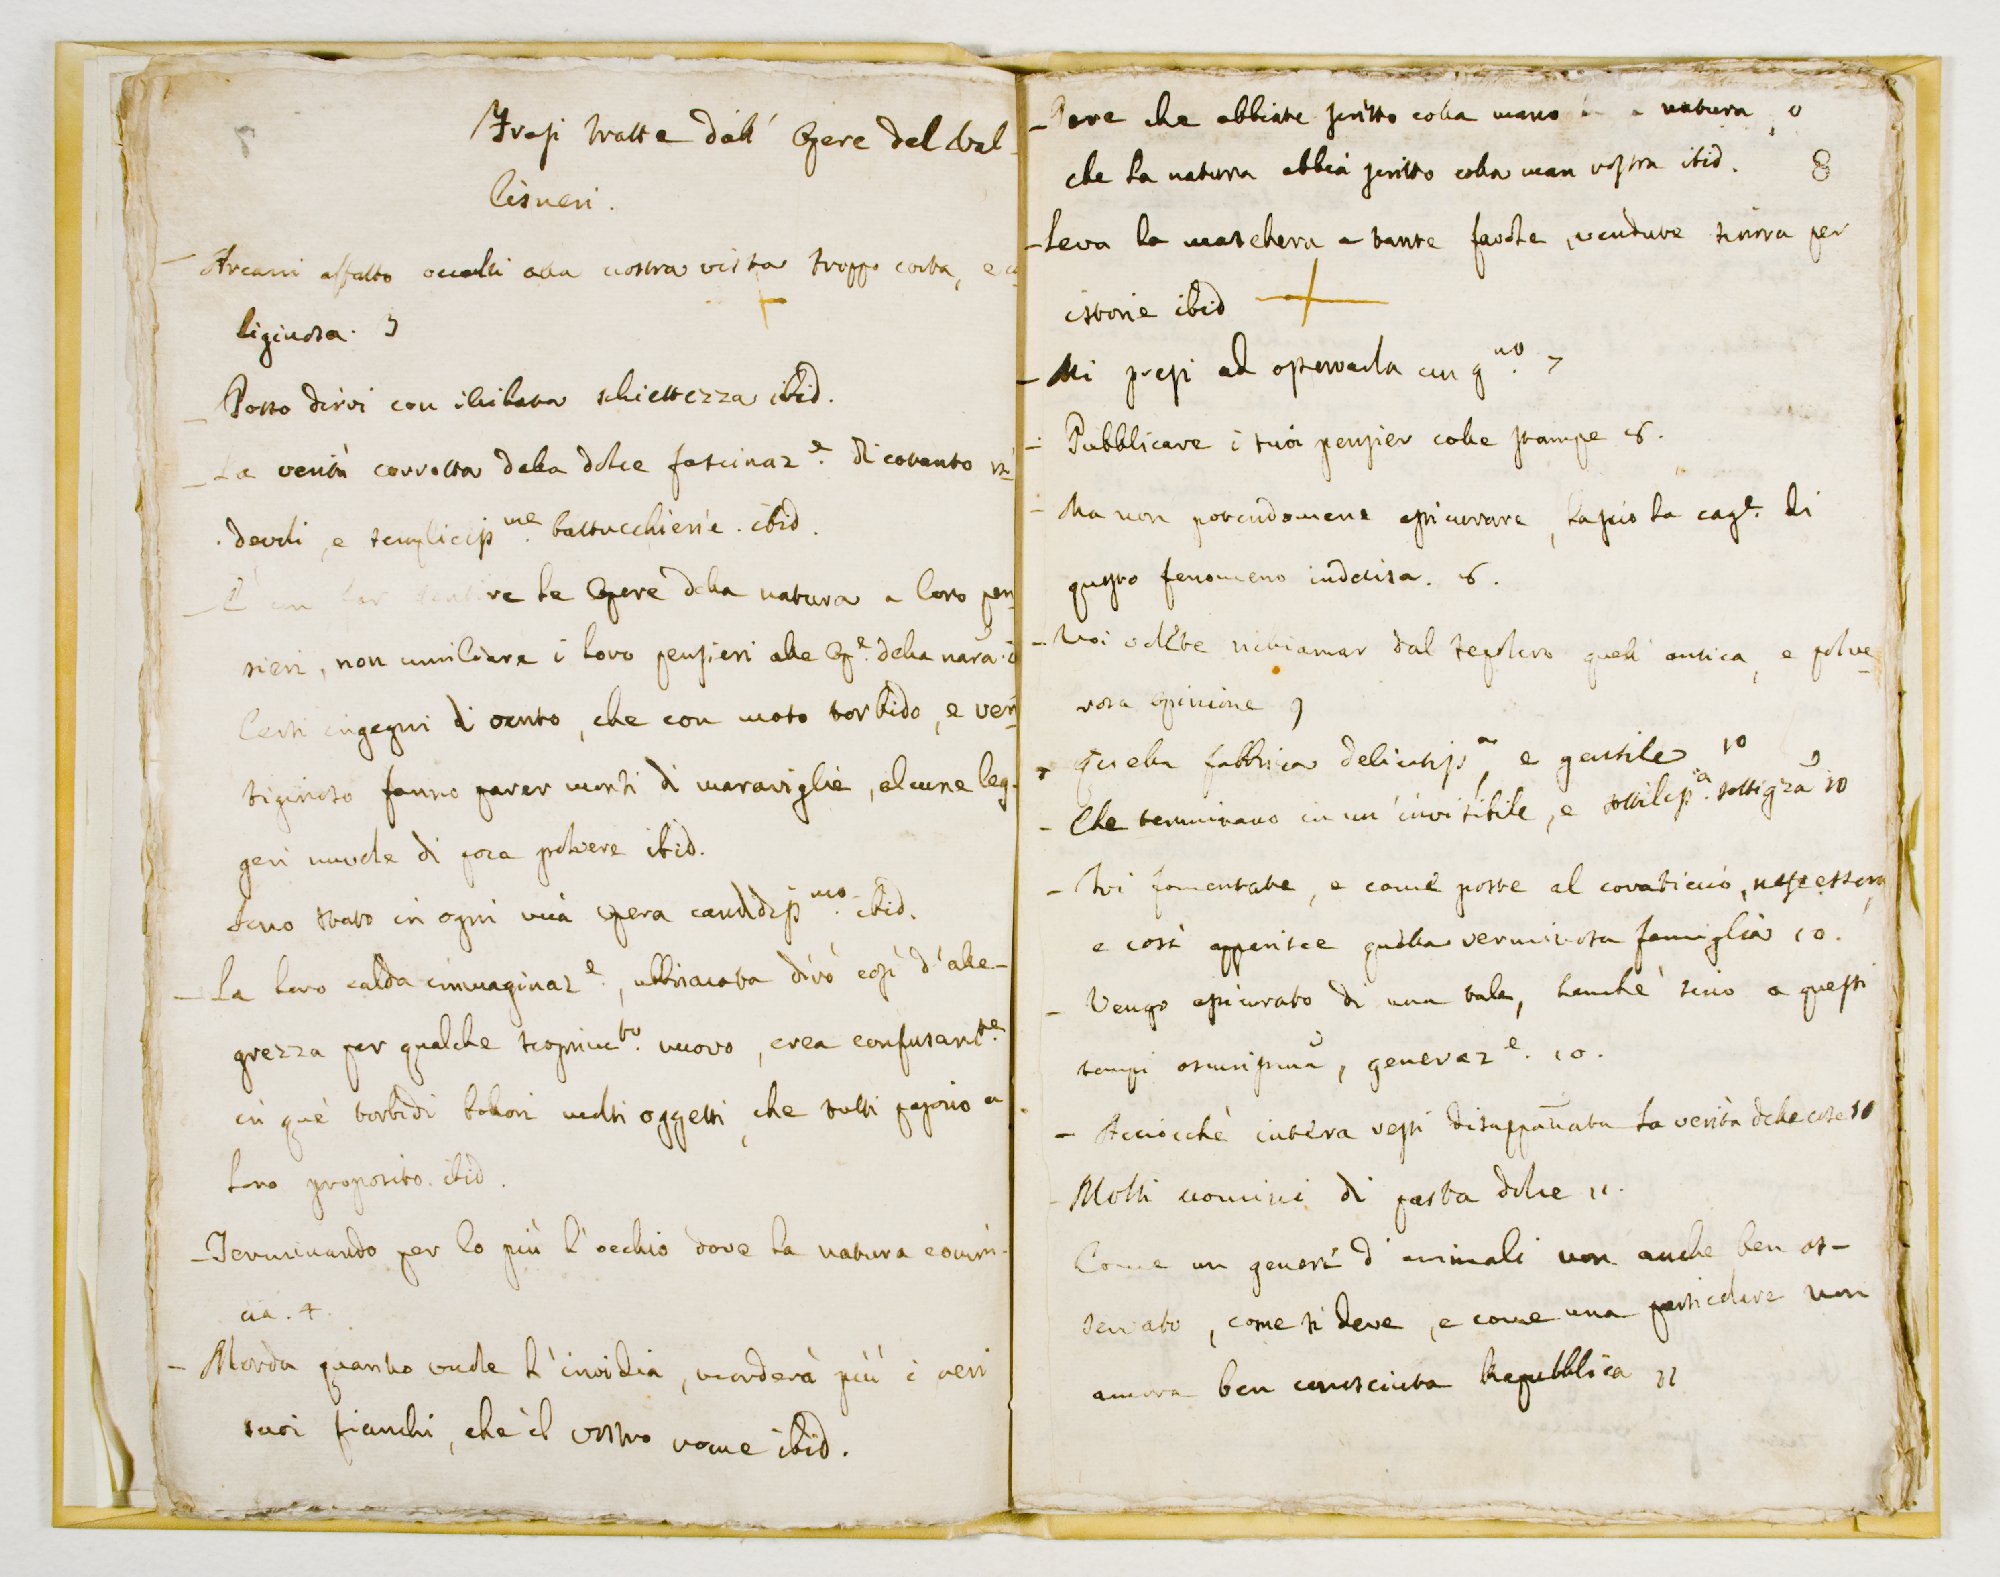 Frasi tratte dall' Opere del Val-
lisneri.
– Arcani affatto occulti alla nostra vista troppo corta, e ca-
liginosa. 3
– Posso dirvi con illibata schiettezza ibid.
– La verità corrotta dalla dolce fascinaz.e di cotanto ri-
devoli, e sempliciss.me battucchierie. ibid.
– È un far servire le Opere della natura a loro pen-
sieri, non umiliare i loro pensieri alle Op.e della nãra. i
Certi ingegni di vento, che con moto torbido, e ver-
tiginoso fanno parer monti di maraviglie, alcune leg-
geri nuvole di poca polvere ibid.
Sono stato in ogni mia opera candidiss.mo ibid.
– La loro calda immaginaz.e, ubbriacata dirò così d'alle-
grezza per qualche scoprim.to nuovo, crea confusam.te
in que' torbidi bollori molti oggetti, che tutti pajono a
loro proposito. ibid.
– Terminando per lo più l'occhio dove la natura comin-
cia. 4.
– Morda quanto vuole l'invidia, morderà più i veri
suoi fianchi, che il vostro nome ibid.
– Pare che abbiate scritto colla mano natura, o
che la natura abbia scritto colla man vostra ibid. 8
– Leva la maschera a tante favole, vendute sinora per
istorie ibid
– Mi presi ad osservarla con g.no 7
– Pubblicare i suoi pensier colle stampe 8.
– Ma non potendomene assicurare, lascio la cag.e di
questo fenomeno indecisa. 8.
– Voi volete richiamar dal sepolcro quell' antica, e polve-
rosa opinione 9
– Quella fabbrica delicatiss.a, e gentile 10
– Che terminano in un' invisibile, e sottiliss.a sottigẽza 10
– Ivi fomentate, e come poste al covaticcio, nascessero,
e così apparisce quella verminosa famiglia 10.
– Vengo assicurato di una tale, benchè sino a questi
tempi oscurissima, generaz.e. 10.
– Acciocchè intera resti disappannata la verità delle cose 10
– Molti uomini di pasta dolce 11.
Come un generi d'animali non anche ben os-
servato, come si deve, e come una particolare non
ancora ben conosciuta Repubblica 11